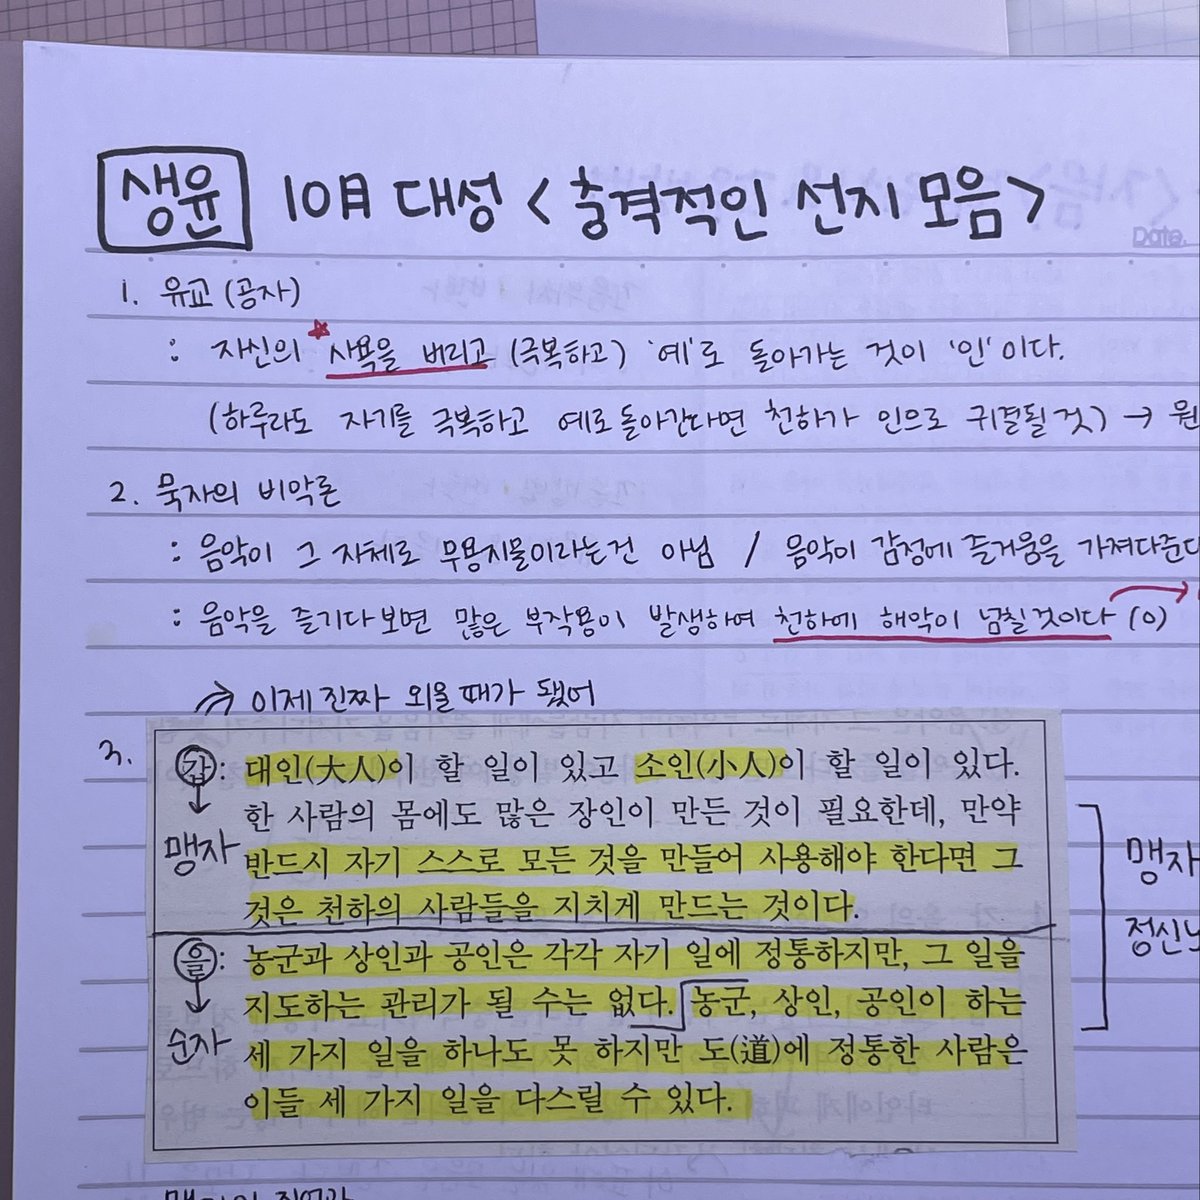 생윤 10月 대성 <충격적인 선지 모음>
Date.
1. 유교 (공자)
: 자신의 사욕을 버리고 (극복하고) '예'로 돌아가는 것이 '인'이다.
(하루라도 자기를 극복하고 예로 돌아간다면 천하가 인으로 귀결될 것) →
2. 묵자의 비악론
: 음악이 그 자체로 무용지물이라는건 아님 / 음악이 감정에 즐거움을 가져다준다
: 음악을 즐기다보면 많은 부작용이 발생하여 천하에 해악이 넘칠것이다 (O)
이제 진짜 외울 때가 됐어
3. 갑: 대인(大人)이 할 일이 있고 소인(小人)이 할 일이 있다.
한 사람의 몸에도 많은 장인이 만든 것이 필요한데, 만약
맹자 반드시 자기 스스로 모든 것을 만들어 사용해야 한다면 그
것은 천하의 사람들을 지치게 만드는 것이다.
맹자
을: 농군과 상인과 공인은 각각 자기 일에 정통하지만, 그 일을
지도하는 관리가 될 수는 없다. 농군, 상인, 공인이 하는
순자 세 가지 일을 하나도 못 하지만 도(道)에 정통한 사람은
이들 세 가지 일을 다스릴 수 있다.
정신